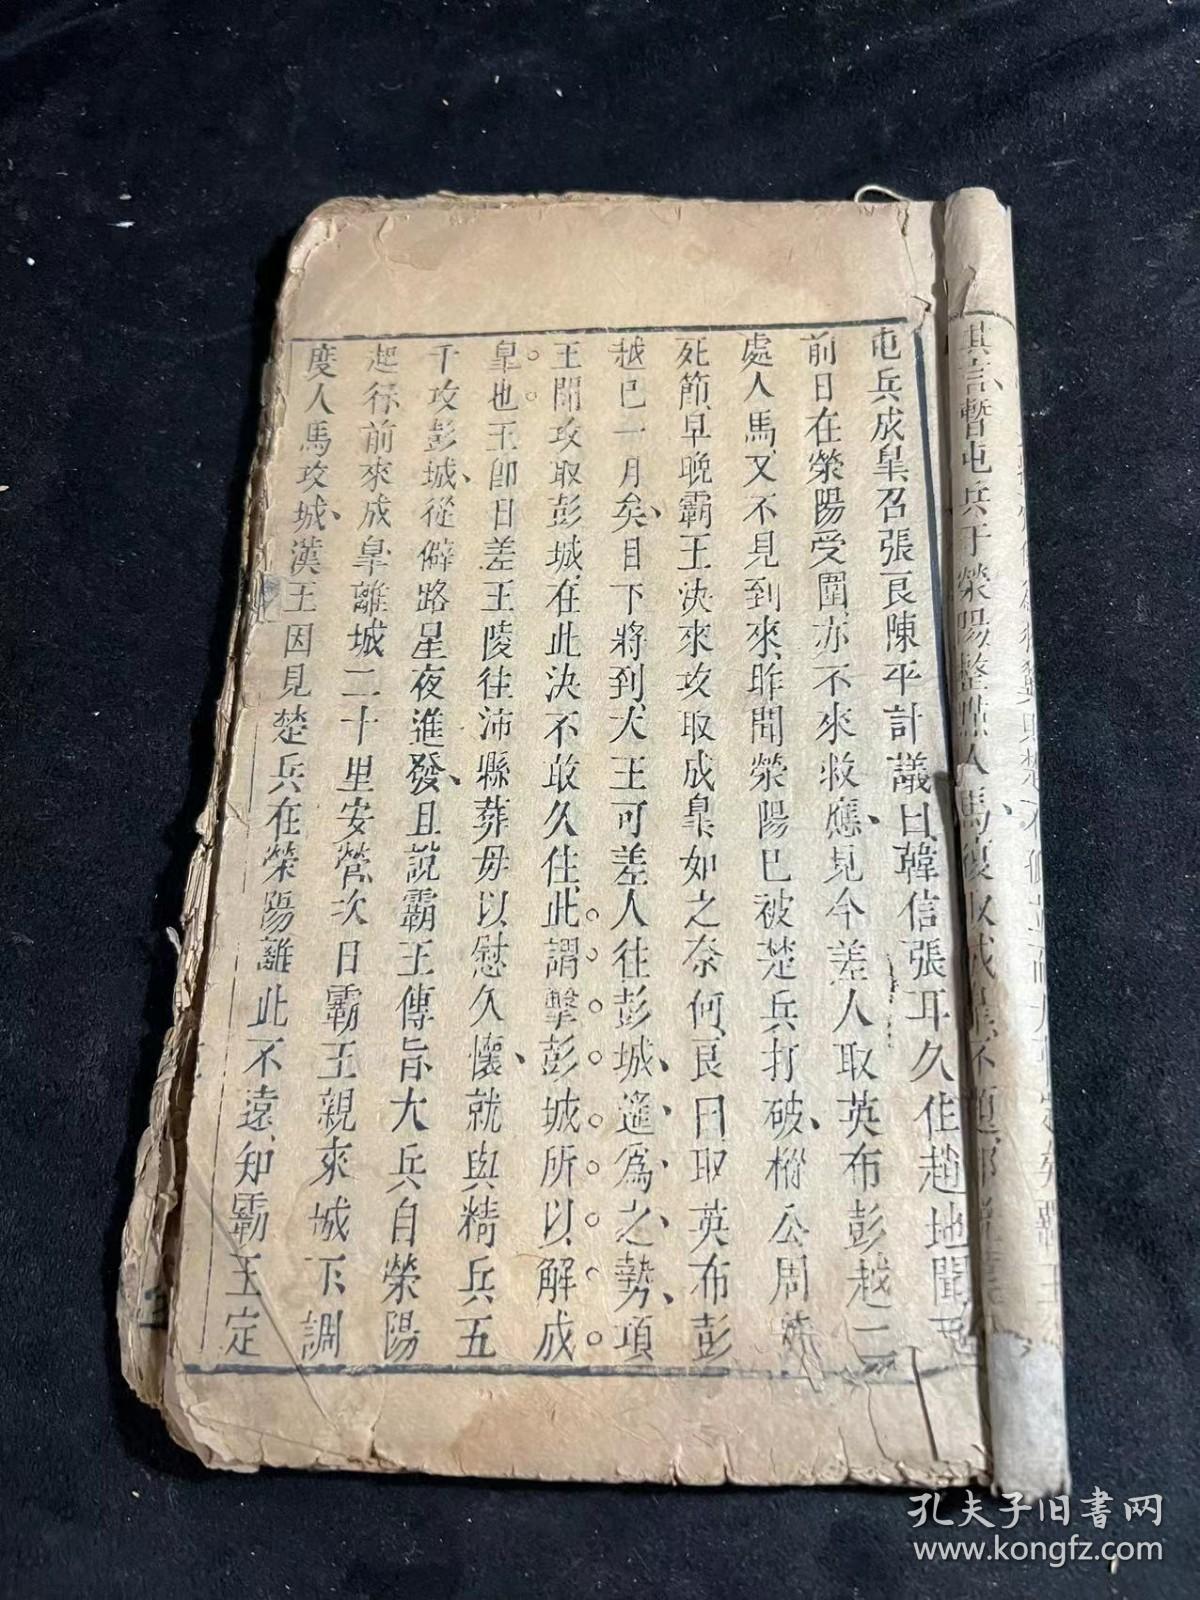 其言暫屯兵于榮陽整點人馬復取成皐不題
屯兵成皐召張良陳平計議曰韓信張耳久住趙地聞
前日在榮陽受圍亦不來救應見今差人取英布彭越二
處人馬又不見到來昨聞榮陽已被楚兵打破樅公周
死節早晚霸王決來攻取成皐如之奈何良曰取英布彭
越已一月矣目下將到大王可差人往彭城遙爲之勢項
王聞攻取彭城在此決不敢久住此謂擊彭城所以解成
皐也王卽日差王陵往沛縣葬母以慰久懷就與精兵五
千攻彭城從僻路星夜進發且說霸王傳旨大兵自榮陽
起行前來成皐離城二十里安營次日霸王親來城下調
度人馬攻城漢王因見楚兵在榮陽離此不遠知霸王定
孔夫子旧书网
www.kongfz.com